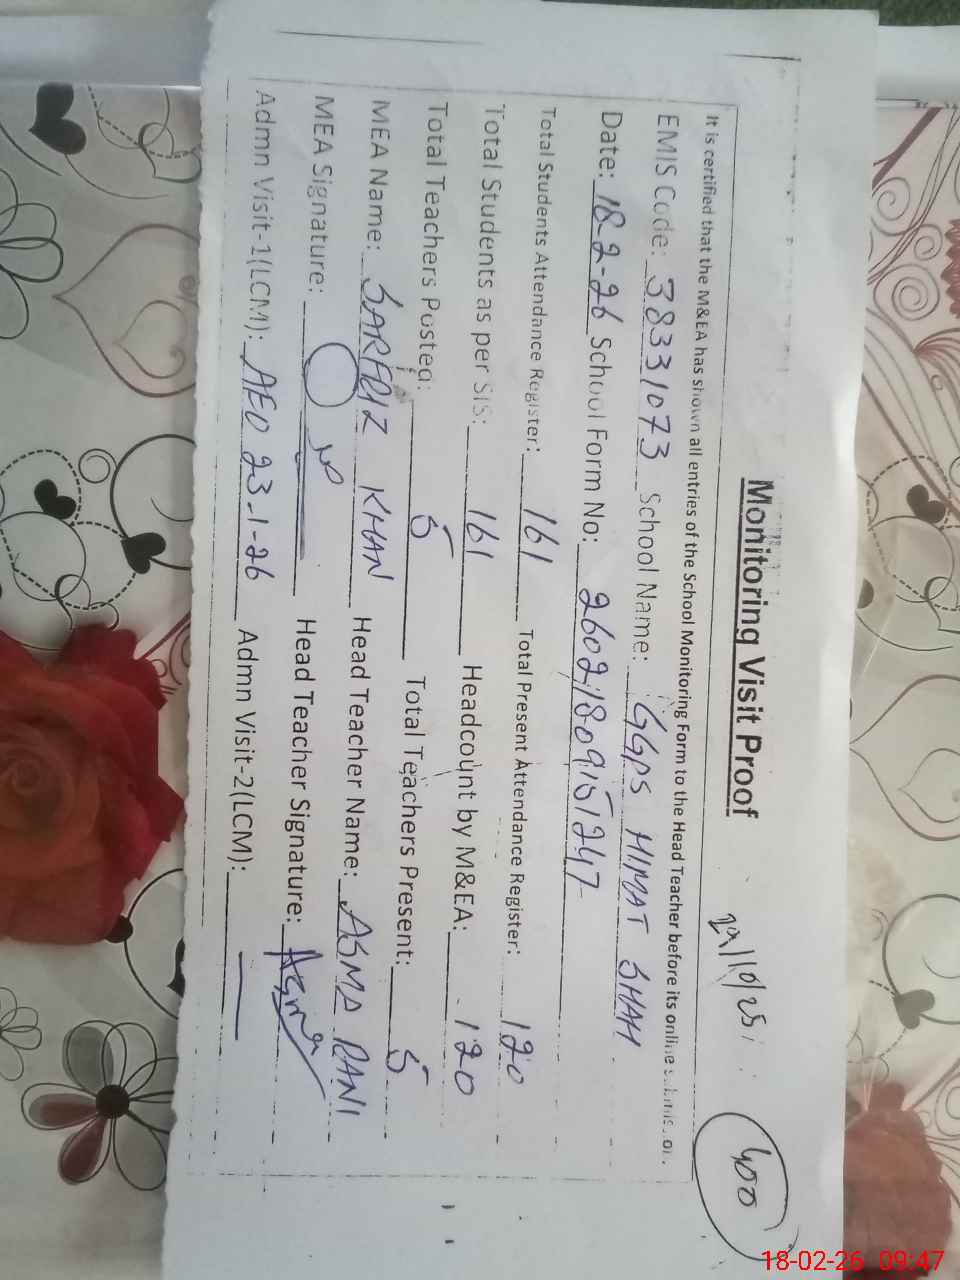 Monitoring Visit Proof
29/10/25
400
It is certified that the M&EA has shown all entries of the School Monitoring Form to the Head Teacher before its online submission.
EMIS Code: 38331073 School Name: GGPS HIMAT SHAH
Date: 18-2-26 School Form No: 2602180915247
Total Students Attendance Register: 161 Total Present Attendance Register: 120
Total Students as per SIS: 161 Headcount by M&EA: 120
Total Teachers Posted: 5 Total Teachers Present: 5
MEA Name: SARFRIZ KHAN Head Teacher Name: ASMA RANI
MEA Signature: Head Teacher Signature: Asma
Admn Visit-1(LCM): AEO 23-1-26 Admn Visit-2(LCM):
18-02-26 09:47